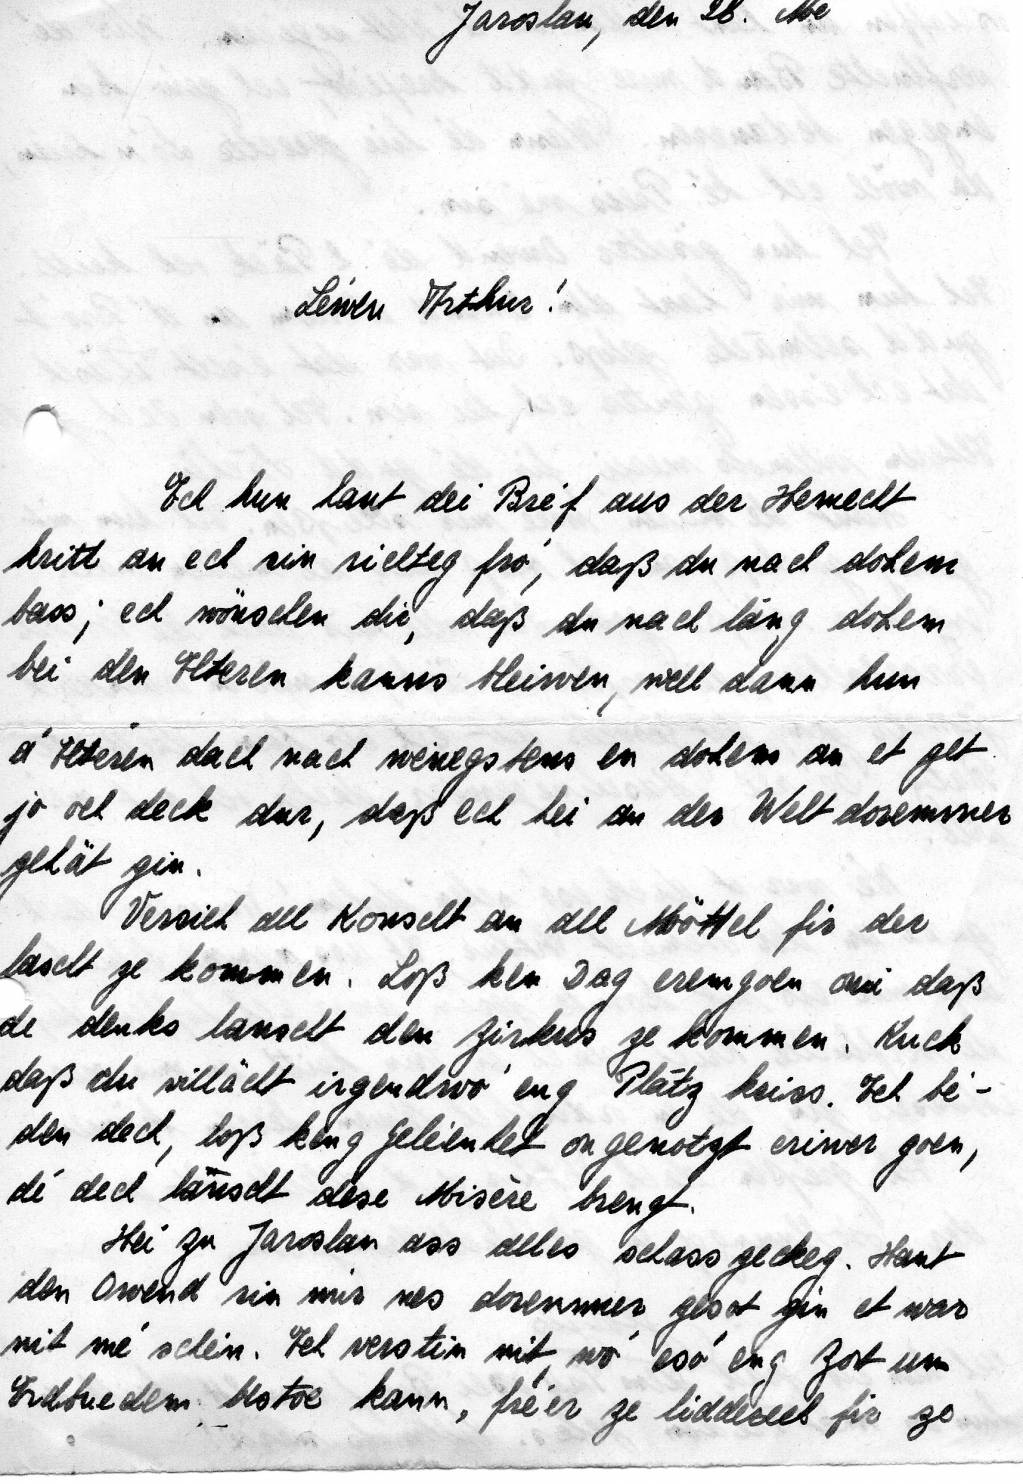 Jaroslau, den 28. Me
Léiwen Arthur!
Ech hun haut dei Bréf aus der Hemecht
kritt an ech sin richteg fró, daß du nach dohem
bass; ech wönschen dir, daß du nach láng dohem
bei den Elteren kanns bleiwen, well dann hun
d' Elteren dach nach wéinegstens en dohem an et get
jo och deck dur, daß ech hei an der Welt doremmer
gehät gin.
Versich all Konscht an all Möttel fir der
lascht ze kommen. Loß ken Dag eremgoen oni daß
de denks lanscht den Zirkus ze kommen. Kuck
daß du villächt irgendwó eng Plátz kriss. Ech bé-
den dech, loß keng Geléienhet ongenotzt eriwer goen,
dé dech länscht dese Misère brengt.
Hei zu Jaroslau ass alles schassgeckeg. Haut
den Owend sin mir nes doremmer gesot gin et war
nit mé schéin. Ech verstin nit, wó esó eng Zort um
Erdbuedem bestoe kann, fréier ze lidderech fir ze